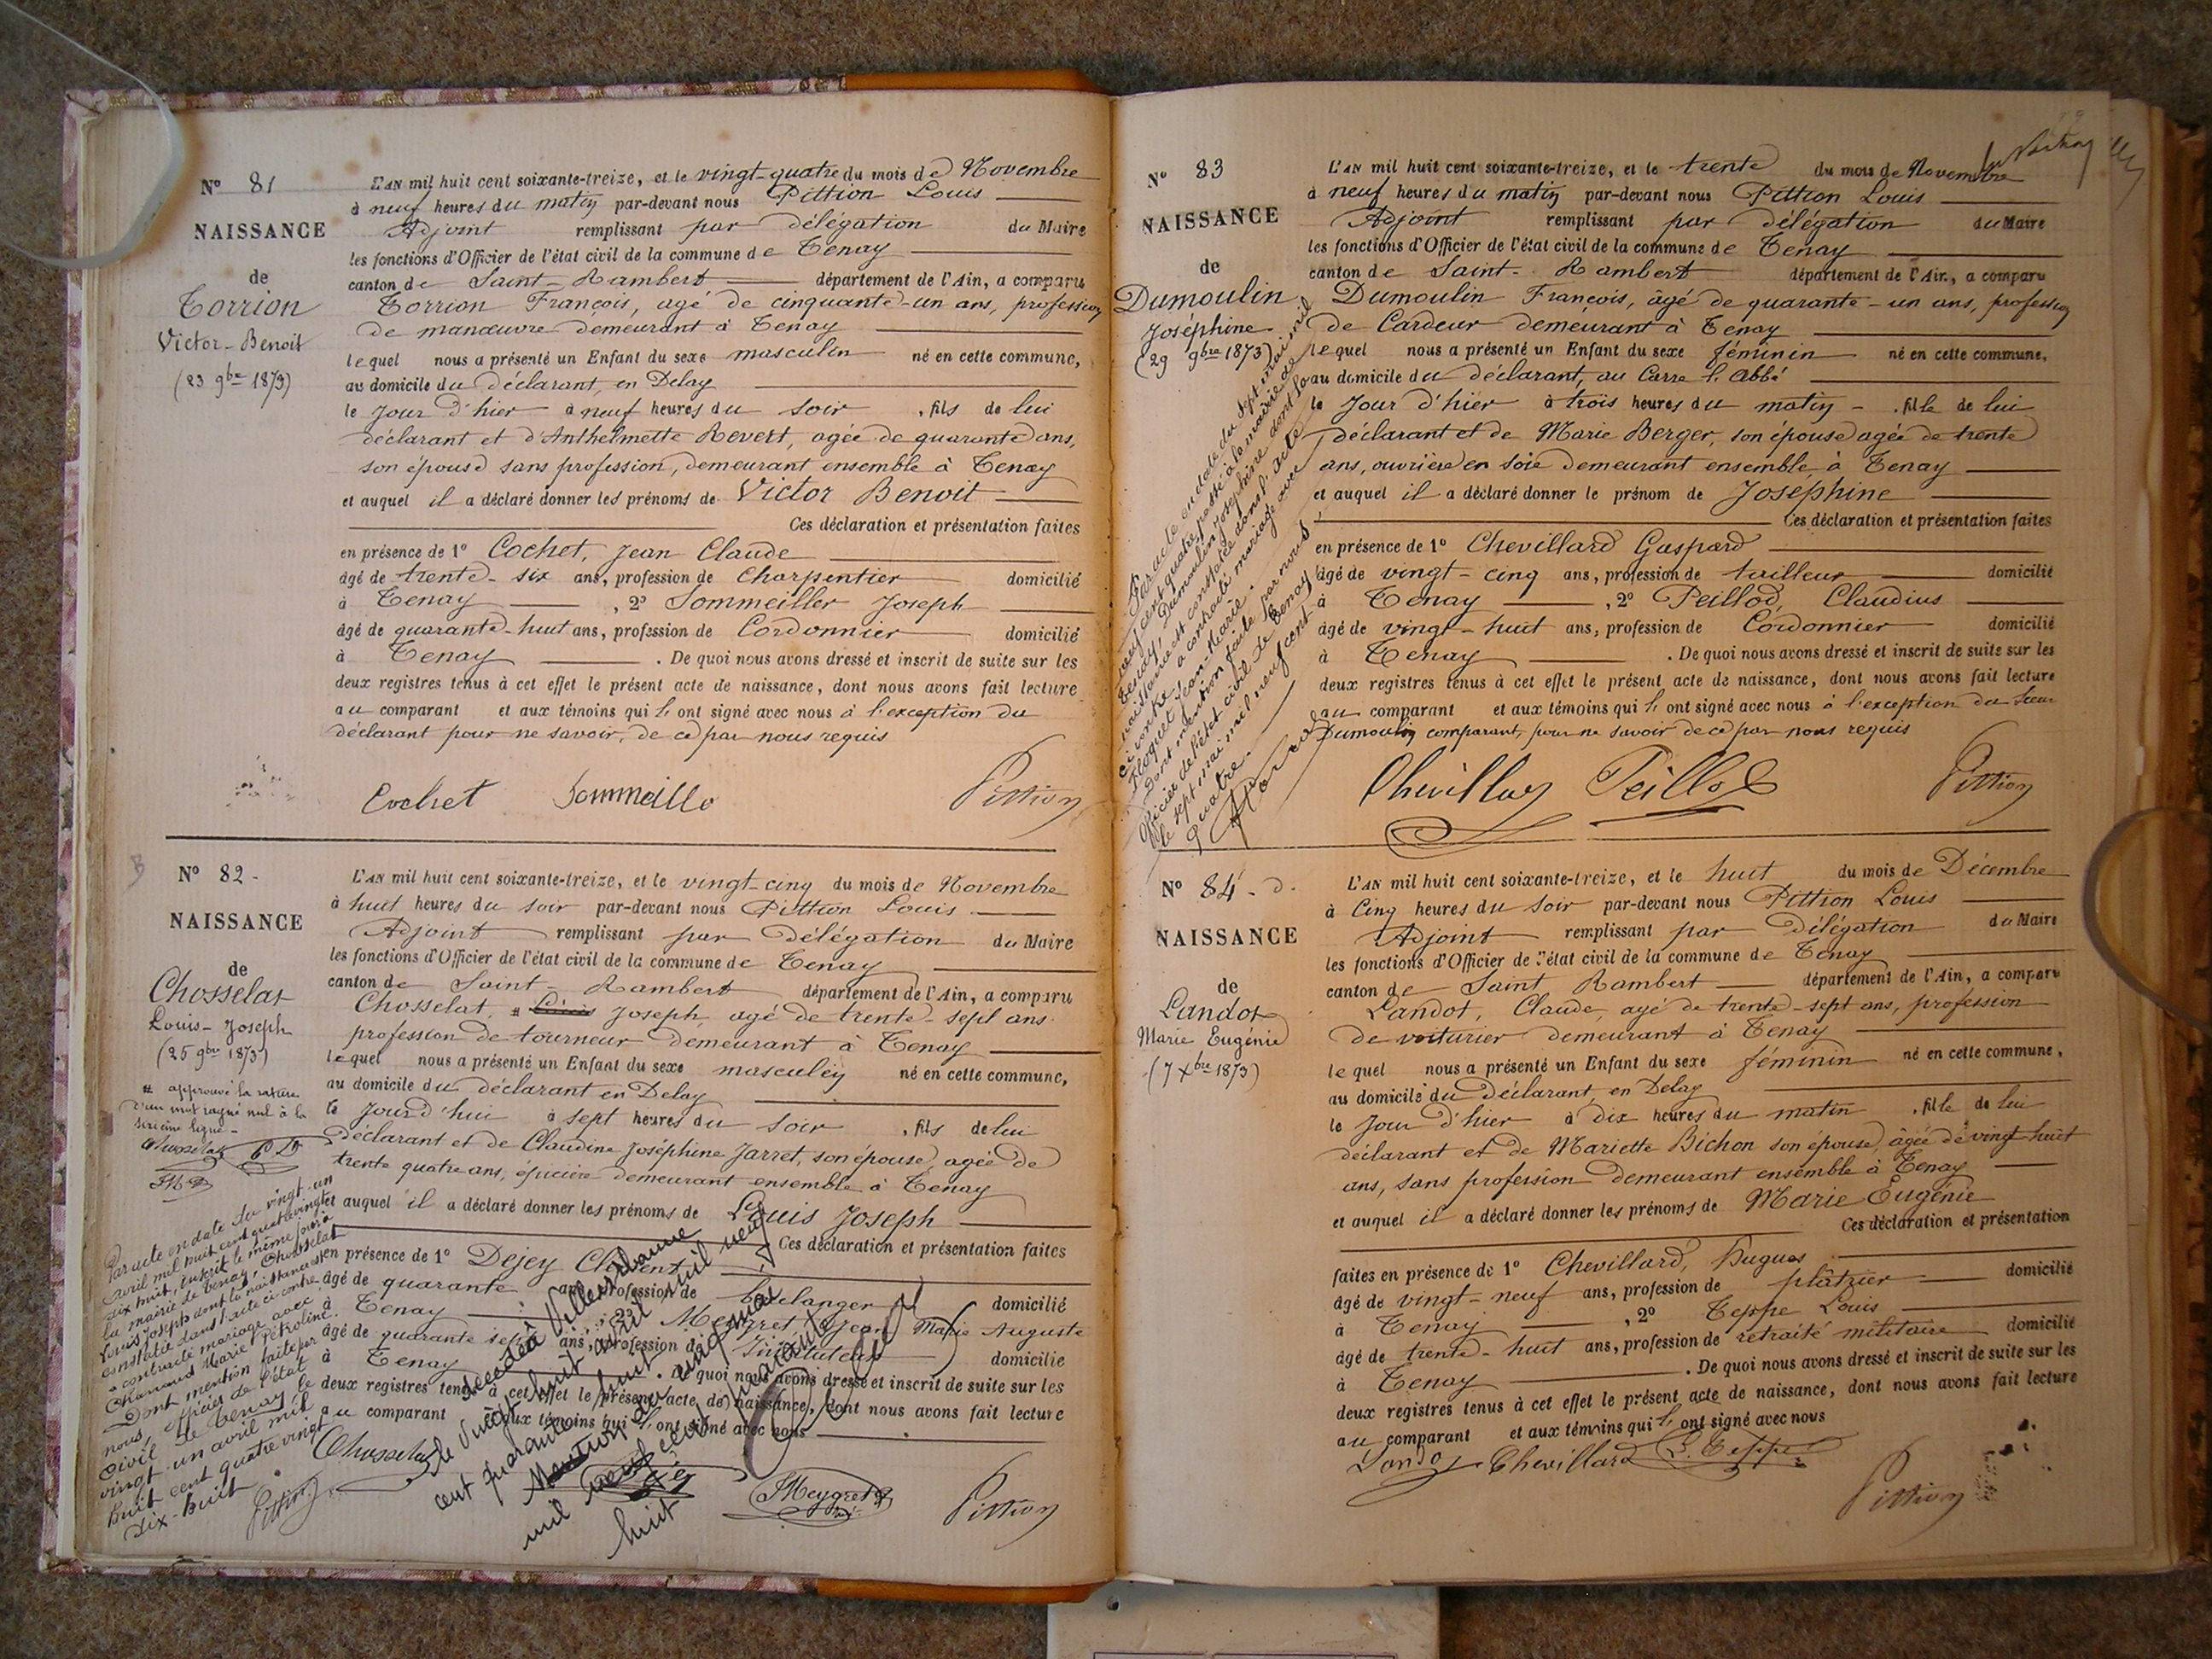 N° 81
NAISSANCE
de
Torrion
Victor-Benoit
(23 9bre 1873)
L'AN mil huit cent soixante-treize, et le vingt-quatre du mois de Novembre
à neuf heures du matin par-devant nous Pittion Louis
Adjoint remplissant par délégation du Maire
les fonctions d'Officier de l'état civil de la commune de Tenay
canton de Saint-Rambert département de l'Ain, a comparu
Torrion François, agé de cinquante-un ans, profession
de manœuvre demeurant à Tenay
lequel nous a présenté un Enfant du sexe masculin né en cette commune,
au domicile du déclarant, en Delay
le jour d'hier à neuf heures du soir, fils de lui
déclarant et d'Anthelmette Revert, agée de quarante ans,
son épouse sans profession, demeurant ensemble à Tenay
et auquel il a déclaré donner les prénoms de Victor Benoit
Ces déclaration et présentation faites
en présence de 1° Cochet, Jean Claude
âgé de trente-six ans, profession de Charpentier domicilié
à Tenay, 2° Sommeiller Joseph
âgé de quarante-huit ans, profession de Cordonnier domicilié
à Tenay. De quoi nous avons dressé et inscrit de suite sur les
deux registres tenus à cet effet le présent acte de naissance, dont nous avons fait lecture
au comparant et aux témoins qui l'ont signé avec nous à l'exception du
déclarant pour ne savoir, de ce par nous requis
Cochet Sommeille Pittion
N° 82
NAISSANCE
de
Chosselat
Louis-Joseph
(25 9bre 1873)
# approuvé la rature
d'un mot rayé nul à la
sixième ligne
Chosselat
L'AN mil huit cent soixante-treize, et le vingt-cinq du mois de Novembre
à huit heures du soir par-devant nous Pittion Louis
Adjoint remplissant par Délégation du Maire
les fonctions d'Officier de l'état civil de la commune de Tenay
canton de Saint-Rambert département de l'Ain, a comparu
Chosselat, # Louis Joseph, agé de trente-sept ans
profession de tourneur demeurant à Tenay
lequel nous a présenté un Enfant du sexe masculin né en cette commune,
au domicile du déclarant en Delay
le jourd'hui à sept heures du soir, fils de lui
déclarant et de Claudine Joséphine Jarret, son épouse, agée de
trente quatre ans, épicière demeurant ensemble à Tenay
et auquel il a déclaré donner les prénoms de Louis Joseph
Ces déclaration et présentation faites
en présence de 1° Dejey Clément
âgé de quarante ans, profession de boulanger domicilié
à Tenay, 2° Meygret Jean Marie Auguste
âgé de quarante sept ans, profession de Instituteur domicilié
à Tenay. De quoi nous avons dressé et inscrit de suite sur les
deux registres tenus à cet effet le présent acte de naissance, dont nous avons fait lecture
au comparant et aux témoins qui l'ont signé avec nous
Chosselat Meygret Pittion
Par acte en date du vingt-un
avril mil huit cent quatre vingt
dix huit, inscrit le même jour à
la mairie de Tenay, Chosselat
Louis Joseph dont la naissance est
constatée dans l'acte ci-contre
a contracté mariage avec
Chanaud Marie Pétroline.
Dont mention faite par
nous, officier de l'état
civil de Tenay le
vingt un avril mil
huit cent quatre vingt
dix-huit
Pittion
décédé à Villeurbanne
le vingt huit avril mil neuf
cent quarante huit.
Mention du cinq mai
mil neuf cent quarante
huit
N° 83
NAISSANCE
de
Dumoulin
Joséphine
(29 9bre 1873)
L'AN mil huit cent soixante-treize, et le trente du mois de Novembre
à neuf heures du matin par-devant nous Pittion Louis
Adjoint remplissant par délégation du Maire
les fonctions d'Officier de l'état civil de la commune de Tenay
canton de Saint-Rambert département de l'Ain, a comparu
Dumoulin François, âgé de quarante-un ans, profession
de Cardeur demeurant à Tenay
lequel nous a présenté un Enfant du sexe féminin né en cette commune,
au domicile du déclarant, au Carre l'Abbé
le jour d'hier à trois heures du matin, fille de lui
déclarant et de Marie Berger, son épouse agée de trente
ans, ouvrière en soie demeurant ensemble à Tenay
et auquel il a déclaré donner le prénom de Joséphine
Ces déclaration et présentation faites
en présence de 1° Chevillard Gaspard
âgé de vingt-cinq ans, profession de tailleur domicilié
à Tenay, 2° Peillod, Claudius
âgé de vingt-huit ans, profession de Cordonnier domicilié
à Tenay. De quoi nous avons dressé et inscrit de suite sur les
deux registres tenus à cet effet le présent acte de naissance, dont nous avons fait lecture
au comparant et aux témoins qui l'ont signé avec nous à l'exception du sieur
Dumoulin comparant, pour ne savoir de ce par nous requis
Chevillard Peillod Pittion
Par acte en date du sept mai mil
neuf cent quatre, passé à la mairie de
Tenay, Dumoulin Joséphine dont la
naissance est constatée dans l'acte
ci-contre, a contracté mariage avec
Floquet Jean-Marie.
Dont mention faite par nous
officier de l'état civil de Tenay
le sept mai mil neuf cent
quatre.
N° 84
NAISSANCE
de
Landot
Marie Eugénie
(7 Xbre 1873)
L'AN mil huit cent soixante-treize, et le huit du mois de Décembre
à Cinq heures du soir par-devant nous Pittion Louis
Adjoint remplissant par Délégation du Maire
les fonctions d'Officier de l'état civil de la commune de Tenay
canton de Saint Rambert département de l'Ain, a comparu
Landot, Claude, agé de trente-sept ans, profession
de voiturier demeurant à Tenay
lequel nous a présenté un Enfant du sexe féminin né en cette commune,
au domicile du Déclarant, en Delay
le jour d'hier à dix heures du matin, fille de lui
déclarant et de Mariette Bichon son épouse, âgée de vingt huit
ans, sans profession demeurant ensemble à Tenay
et auquel il a déclaré donner les prénoms de Marie Eugénie
Ces déclaration et présentation
faites en présence de 1° Chevillard, Hugues
âgé de vingt-neuf ans, profession de plâtrier domicilié
à Tenay, 2° Teppe Louis
âgé de trente-huit ans, profession de retraité militaire domicilié
à Tenay. De quoi nous avons dressé et inscrit de suite sur les
deux registres tenus à cet effet le présent acte de naissance, dont nous avons fait lecture
au comparant et aux témoins qui l'ont signé avec nous
Landot Chevillard L. Teppe
Pittion